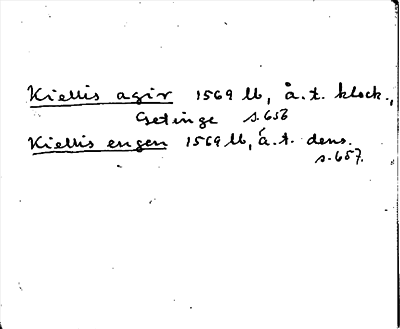 Kiellis agir 1569 lb, å.t. klock.,
Getinge s. 656
Kiellis engen 1569 lb, å.t. dens.
s. 657.